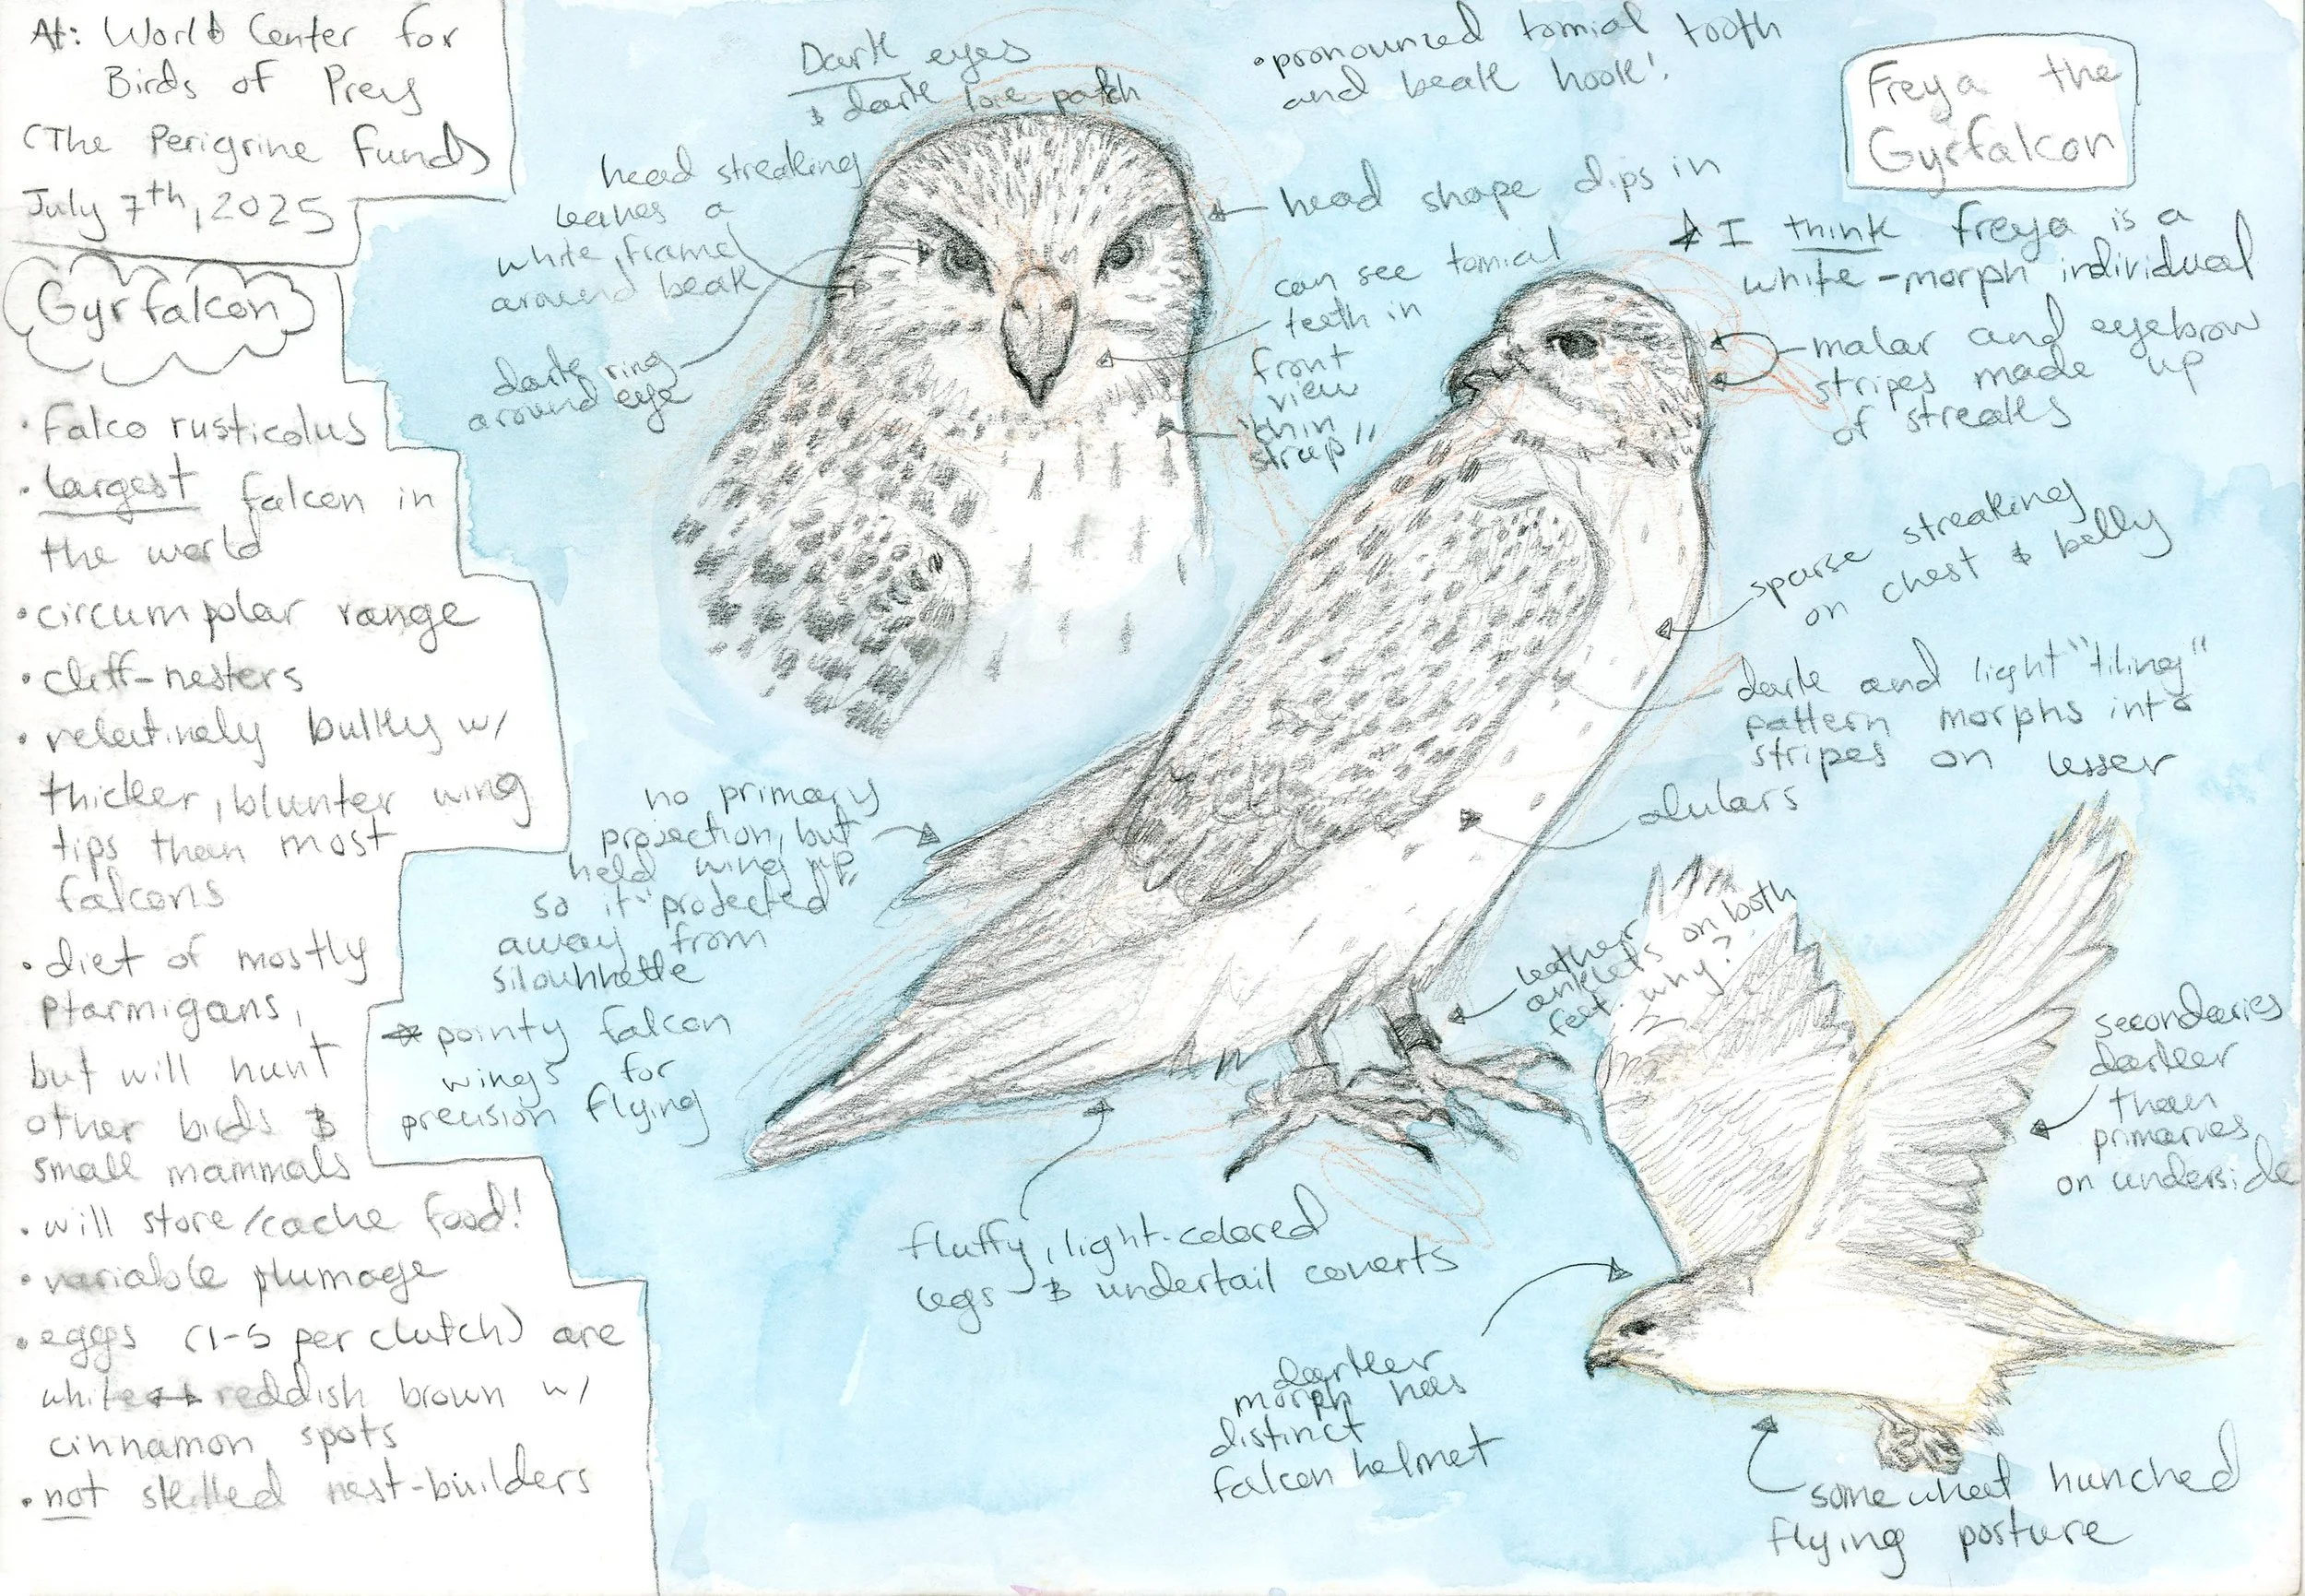 At: World Center for
Birds of Prey
(The Perigrine Fund)
July 7th, 2025
Gyrfalcon
• Falco rusticolus
• largest falcon in
the world
• circumpolar range
• cliff-nesters
• relatively bulky w/
thicker, blunter wing
tips than most
falcons
• diet of mostly
ptarmigans,
but will hunt
other birds &
small mammals
• will store/cache food!
• variable plumage
• eggs (1-5 per clutch) are
white ↔ reddish brown w/
cinnamon spots
• not skilled nest-builders
Dark eyes
& dark lore patch
head streaking
leaves a
white frame
around beak
dark ring
around eye
• pronounced tomial tooth
and beak hook!
head shape dips in
can see tomial
teeth in
front
view
"chin
strap"
Freya the
Gyrfalcon
I think Freya is a
white-morph individual
malar and eyebrow
stripes made up
of streaks
sparse streaking
on chest & belly
dark and light "tiling"
pattern morphs into
stripes on lesser
alulars
no primary
projection, but
held wing up
so it "protected"
away from
silouhhette
pointy falcon
wings for
precision flying
leather
anklets on both
feet. why?
secondaries
darker
than
primaries
on underside
fluffy, light-colored
legs & undertail coverts
darker
morph has
distinct
falcon helmet
somewhat hunched
flying posture